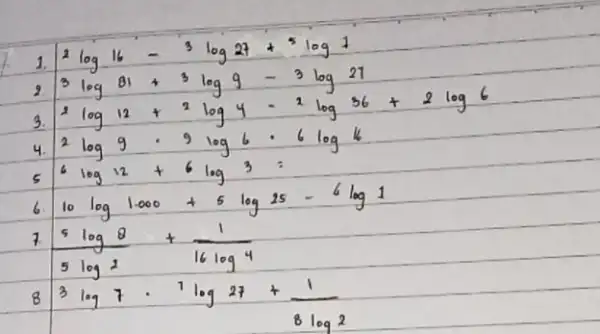 1. ² log 16 - ³ log 27 + ⁵ log 1
2. ³ log 81 + ³ log 9 - ³ log 27
3. ² log 12 + ² log 4 - ² log 36 + 2 log 6
4. ² log 9 . 9 log 6 . 6 log 16
5 ⁶ log 12 + ⁶ log 3 =
6. 10 log 1.000 + 5 log 25 - ⁶ log 1
7. ⁵ log 8 + 1
5 log 2 16 log 4
8 ³ log 7 . ⁷ log 27 + 1
8 log 2